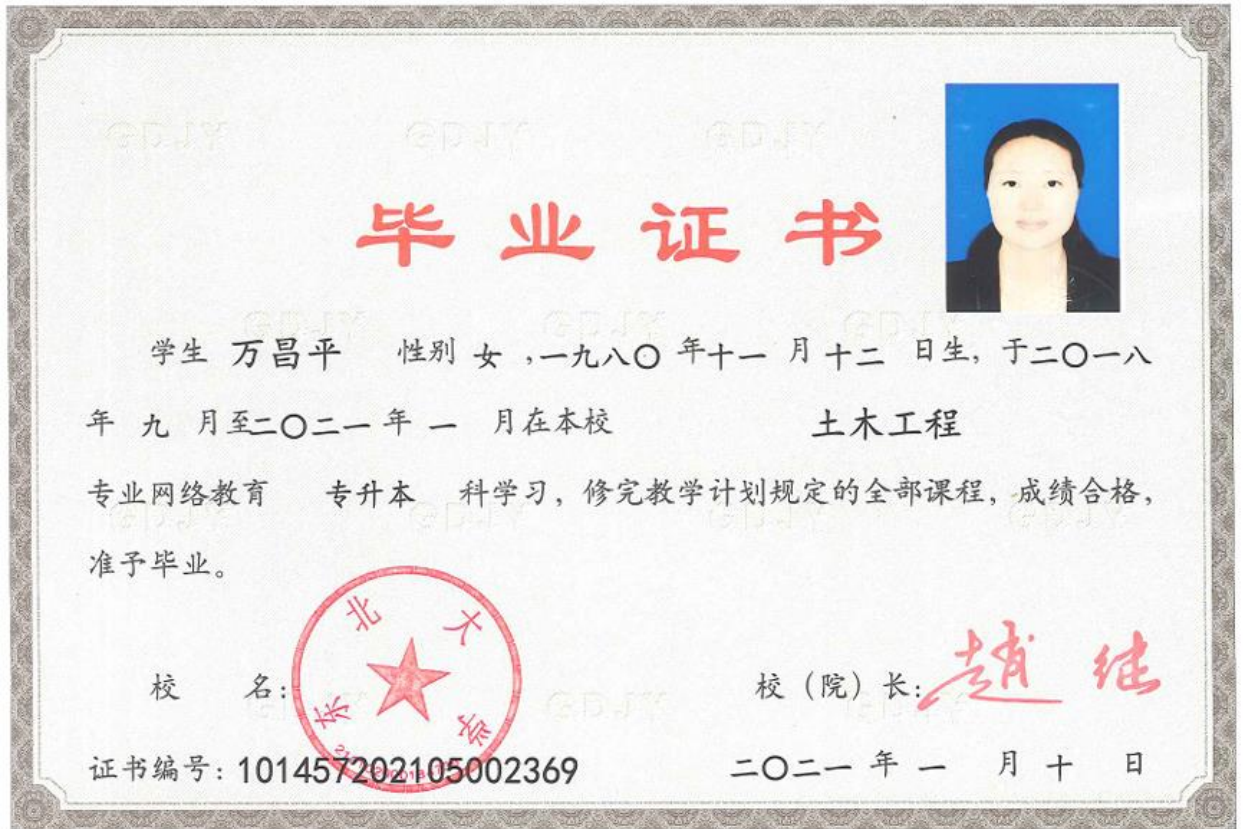 毕业证书
学生 万昌平 性别 女 ,一九八〇 年十一 月 十二 日生，于二〇一八
年 九 月至二〇二一 年 一 月在本校 土木工程
专业网络教育 专升本 科学习，修完教学计划规定的全部课程，成绩合格，
准予毕业。
东北大学
校 名： 校（院）长：赵继
证书编号：101457202105002369 二〇二一 年 一 月 十 日